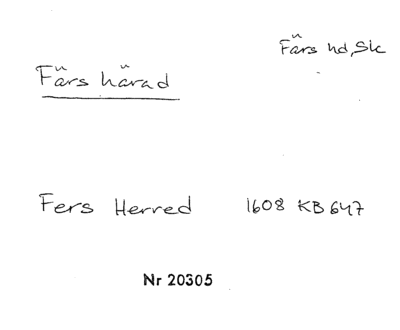 Färs hd, Sk
Färs härad
Fers Herred 1608 KB 647
Nr 20305